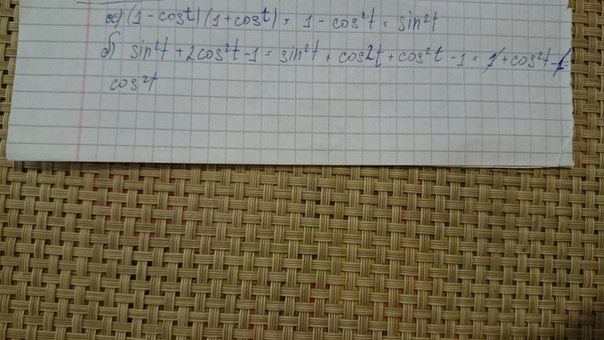 а) (1-cost)(1+cost) = 1-cos²t = sin²t
б) sin²t + 2cos²t - 1 = sin²t + cos2t + cos²t - 1 = 1 + cos²t - 1
cos²t